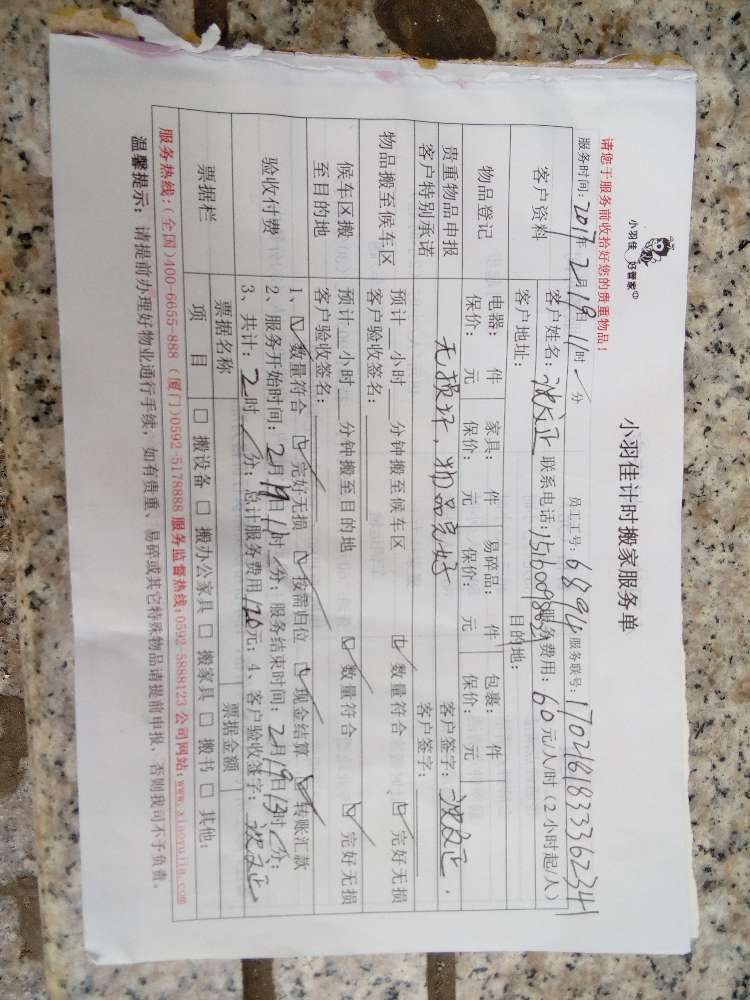 小羽佳 好管家
小羽佳计时搬家服务单
请您于服务前收拾好您的贵重物品！
服务时间：2017年2月19日11时/分 员工工号：6894 服务联号：
客户资料
客户姓名： 联系电话： 服务费用：60元/人时（2小时起/人）
客户地址： 目的地：
物品登记
电器： 件 家具： 件 易碎品： 件 包裹： 件
保价： 元 保价： 元 保价： 元 保价： 元
贵重物品申报
客户特别承诺
无损坏，物品完好 客户签字：
物品搬至候车区
预计 小时 分钟搬至候车区 ☑ 数量符合 ☑ 完好无损
客户验收签名： 客户签字：
候车区搬
至目的地
预计 小时 分钟搬至目的地 ☑ 数量符合 ☑ 完好无损
客户验收签名：
验收付费
1、☑ 数量符合 ☑ 完好无损 ☑ 按需归位 ☑ 现金结算 ☑ 转账汇款
2、服务开始时间：2月19日11时/分；服务结束时间：2月19日13时/分；
3、共计：2时/分；总计服务费用120元；4、客户验收签字：
票据栏
票据名称 票据金额
项 目 □ 搬设备 □ 搬办公家具 □ 搬家具 □ 搬书 □ 其他：
服务热线：（全国）400-6655-888（厦门）0592-5178888 服务监督热线：0592-5888123 公司网站：www.xiaoyujia.com
温馨提示：请提前办理好物业通行手续，如有贵重、易碎或其它特殊物品请提前申报，否则我司不予负责。